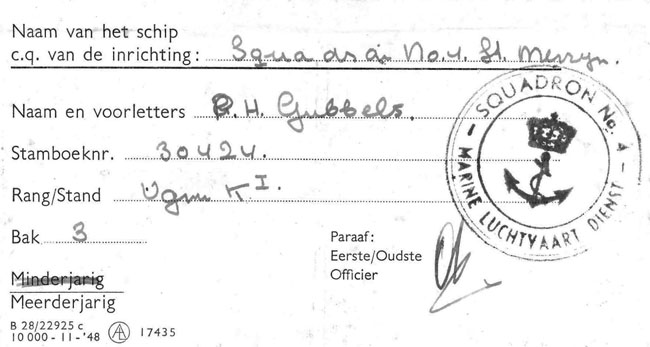 Naam van het schip
c.q. van de inrichting: Squadron No. 4. St. Merryn.
Naam en voorletters P. H. Gubbels.
Stamboeknr. 30424.
Rang/Stand Vgm K I.
Bak 3
Paraaf:
Eerste/Oudste
Officier
Minderjarig
Meerderjarig
B 28/22925 c
10 000 - 11 - '48 AL 17435
— SQUADRON No. 4 —
MARINE LUCHTVAART DIENST